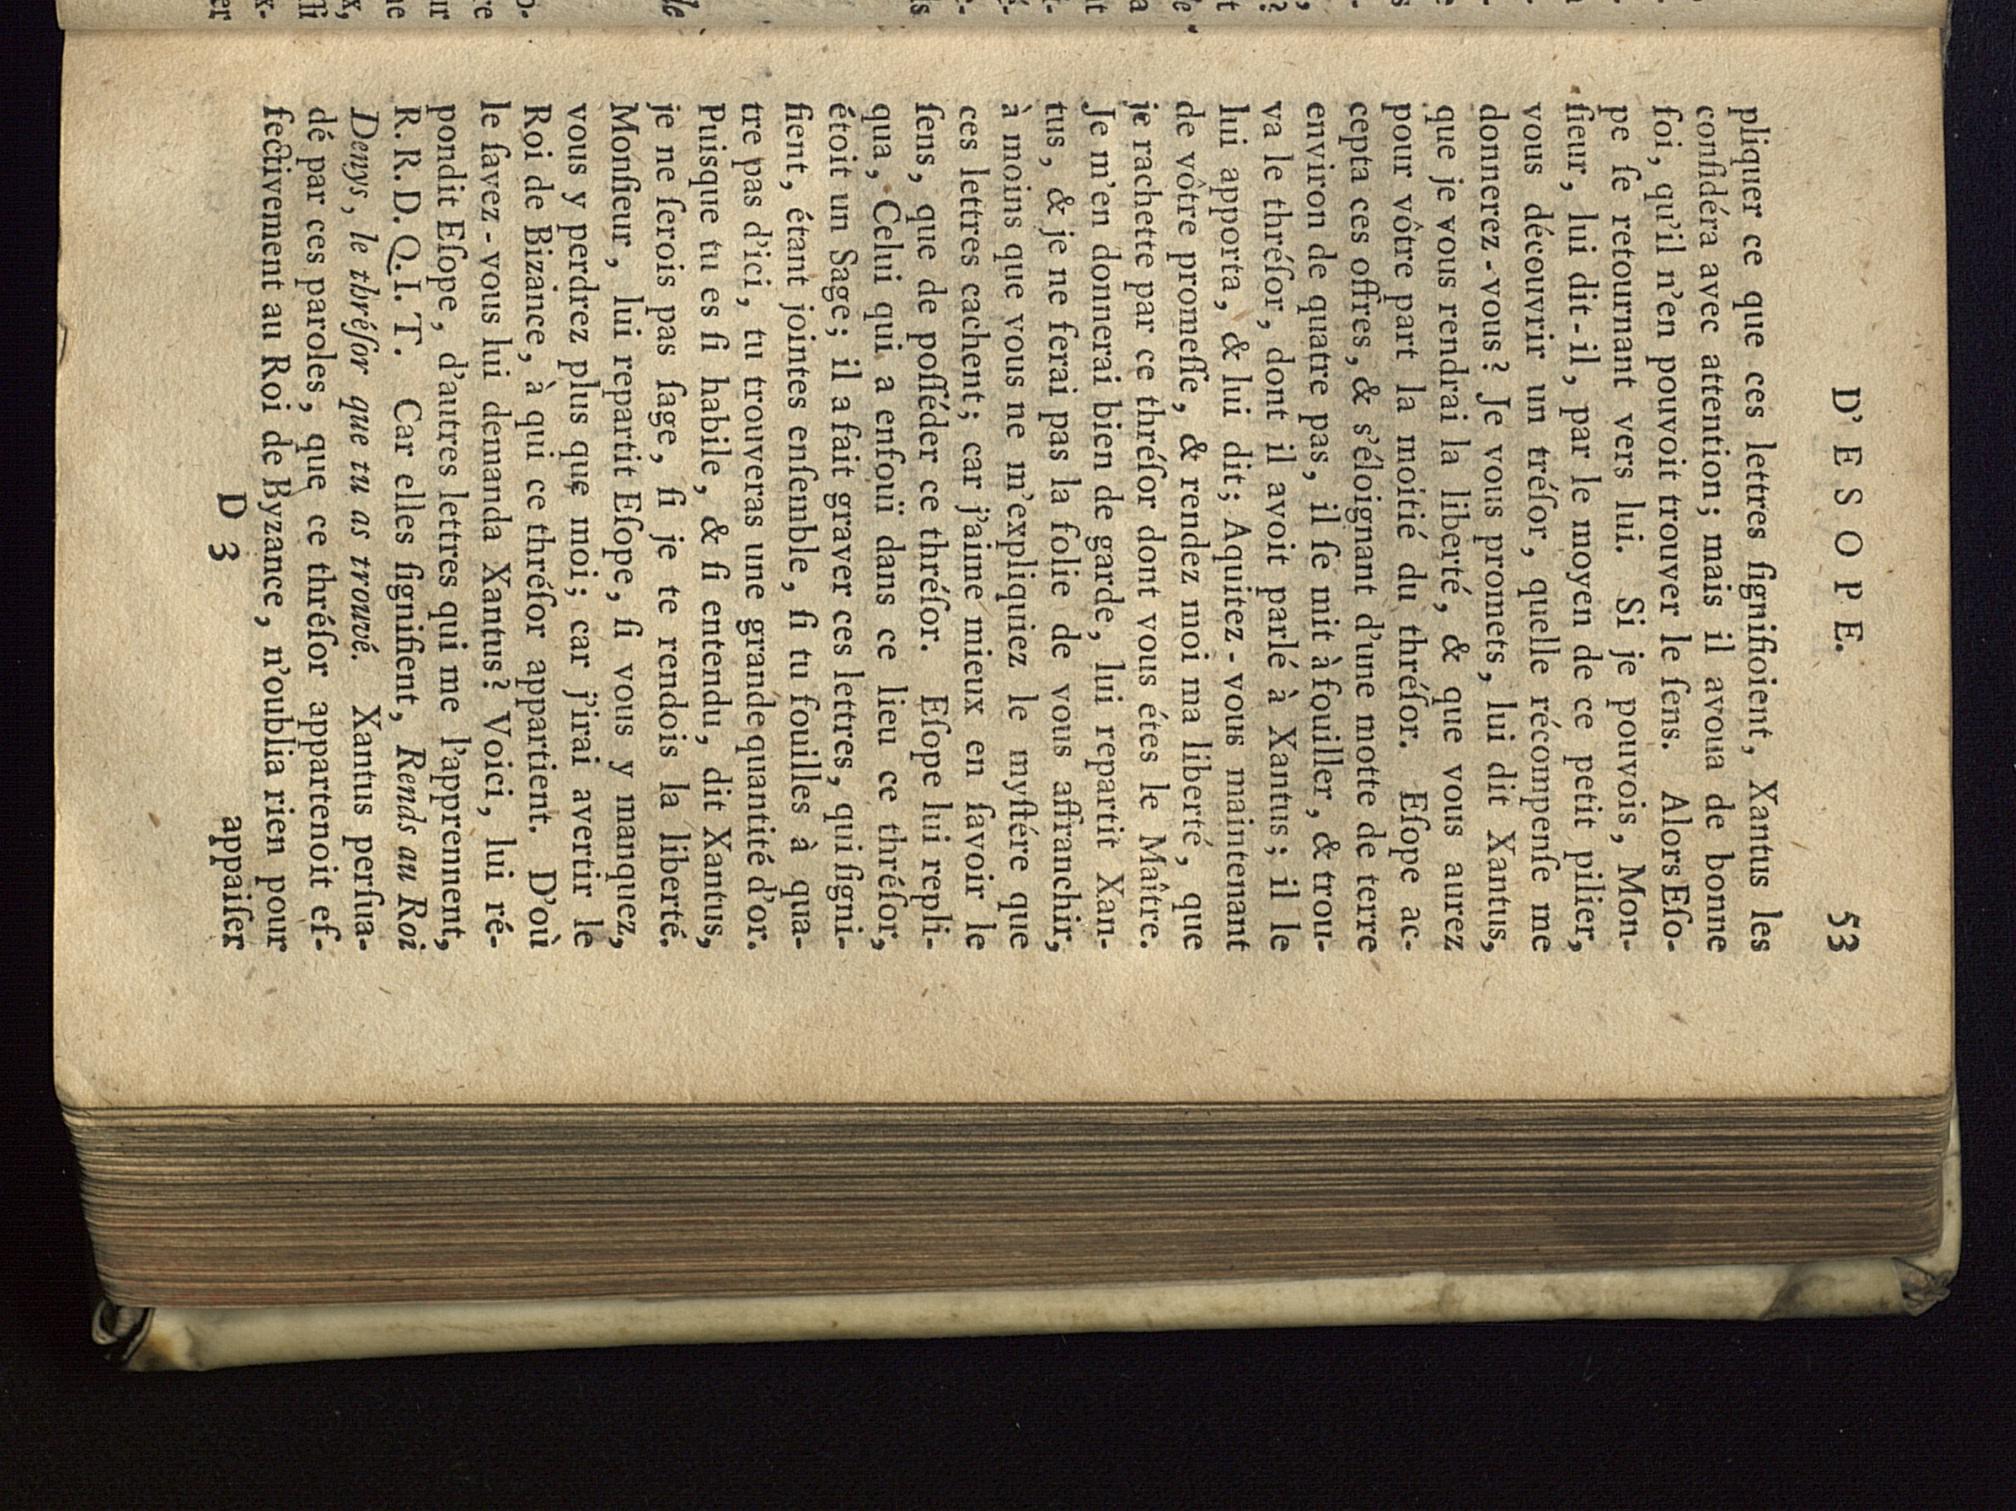 D'ESOPE. 53
pliquer ce que ces lettres ſignifioient, Xantus les
conſidéra avec attention; mais il avoua de bonne
foi, qu'il n'en pouvoit trouver le ſens. Alors Eſo-
pe ſe retournant vers lui. Si je pouvois, Mon-
ſieur, lui dit-il, par le moyen de ce petit pilier,
vous découvrir un tréſor, quelle récompenſe me
donnerez-vous? Je vous promets, lui dit Xantus,
que je vous rendrai la liberté, & que vous aurez
pour vôtre part la moitié du thréſor. Eſope ac-
cepta ces offres, & s'éloignant d'une motte de terre
environ de quatre pas, il ſe mit à fouiller, & trou-
va le thréſor, dont il avoit parlé à Xantus; il le
lui apporta, & lui dit; Aquitez-vous maintenant
de vôtre promeſſe, & rendez moi ma liberté, que
je rachette par ce thréſor dont vous étes le Maître.
Je m'en donnerai bien de garde, lui repartit Xan-
tus, & je ne ferai pas la folie de vous affranchir,
à moins que vous ne m'expliquiez le myſtére que
ces lettres cachent; car j'aime mieux en ſavoir le
ſens, que de poſſéder ce thréſor. Eſope lui repli-
qua, Celui qui a enfouï dans ce lieu ce thréſor,
étoit un Sage; il a fait graver ces lettres, qui ſigni-
fient, étant jointes enſemble, ſi tu fouilles à qua-
tre pas d'ici, tu trouveras une grande quantité d'or.
Puisque tu es ſi habile, & ſi entendu, dit Xantus,
je ne ſerois pas ſage, ſi je te rendois la liberté.
Monſieur, lui repartit Eſope, ſi vous y manquez,
vous y perdrez plus que moi; car j'irai avertir le
Roi de Bizance, à qui ce thréſor appartient. D'où
le ſavez-vous lui demanda Xantus? Voici, lui ré-
pondit Eſope, d'autres lettres qui me l'apprennent,
R. R. D. Q. I. T. Car elles ſignifient, Rends au Roi
Denys, le thréſor que tu as trouvé. Xantus perſua-
dé par ces paroles, que ce thréſor appartenoit ef-
fectivement au Roi de Byzance, n'oublia rien pour
D 3 appaiſer